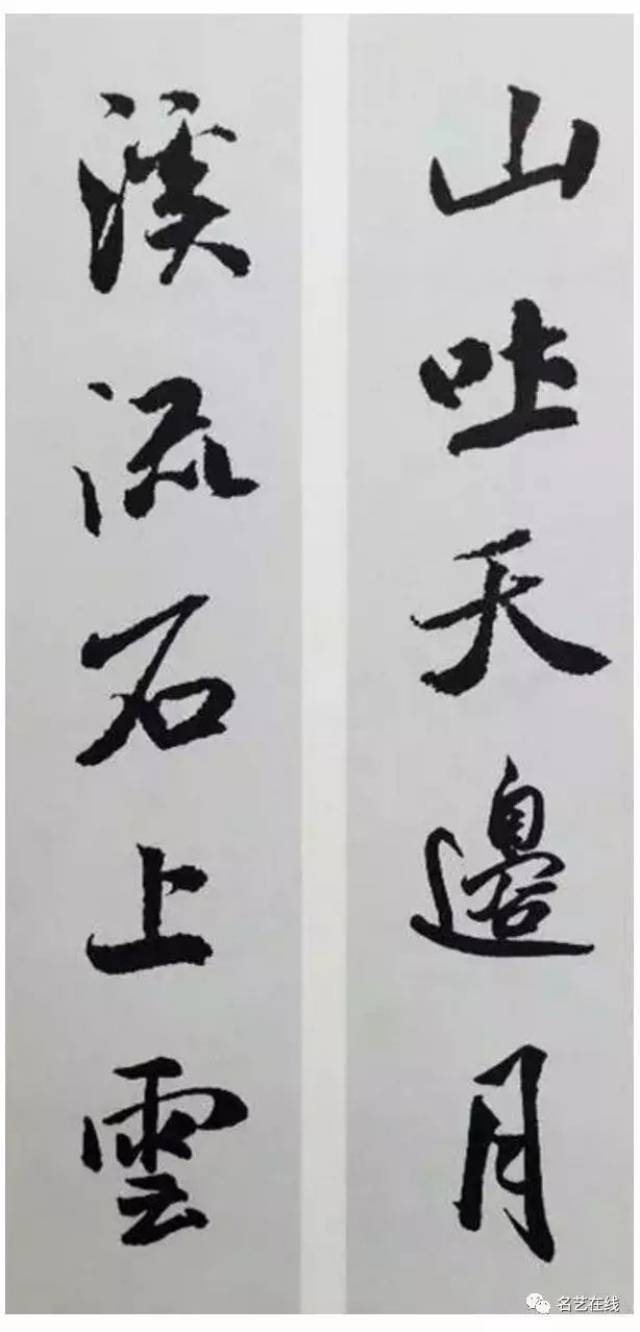 山吐天邊月
溪流石上雲
名艺在线